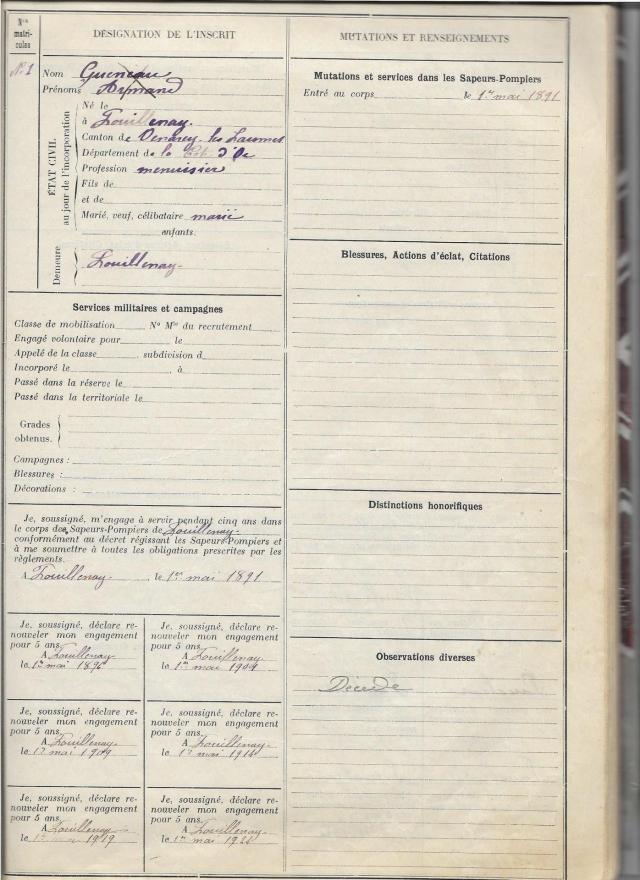 Nos matri-cules
DÉSIGNATION DE L'INSCRIT
N° 1
Nom Gueneau
Prénoms Armand
ÉTAT CIVIL au jour de l'incorporation
Né le
à Pouillenay
Canton de Venarey-les Laumes
Département de la Côte d'Or
Profession menuisier
Fils de
et de
Marié, veuf, célibataire marié
enfants.
Demeure
Pouillenay
Services militaires et campagnes
Classe de mobilisation N° Mle du recrutement
Engagé volontaire pour le
Appelé de la classe , subdivision d
Incorporé le , à
Passé dans la réserve le
Passé dans la territoriale le
Grades
obtenus.
Campagnes :
Blessures :
Décorations :
Je, soussigné, m'engage à servir pendant cinq ans dans
le corps des Sapeurs-Pompiers de Pouillenay
conformément au décret régissant les Sapeurs-Pompiers et
à me soumettre à toutes les obligations prescrites par les
règlements.
A Pouillenay , le 1er mai 1891
Je, soussigné, déclare re-
nouveler mon engagement
pour 5 ans.
A Pouillenay
le 1er mai
Je, soussigné, déclare re-
nouveler mon engagement
pour 5 ans.
A Pouillenay
le 1er mai
Je, soussigné, déclare re-
nouveler mon engagement
pour 5 ans.
A Pouillenay
le 1er mai 1909
Je, soussigné, déclare re-
nouveler mon engagement
pour 5 ans.
A Pouillenay
le 1er mai 1914
Je, soussigné, déclare re-
nouveler mon engagement
pour 5 ans
A Pouillenay
le 1er mai 1919
Je, soussigné, déclare re-
nouveler mon engagement
pour 5 ans
A Pouillenay
le 1er mai
MUTATIONS ET RENSEIGNEMENTS
Mutations et services dans les Sapeurs-Pompiers
Entré au corps le 1er mai 1891
Blessures, Actions d'éclat, Citations
Distinctions honorifiques
Observations diverses
Décédé